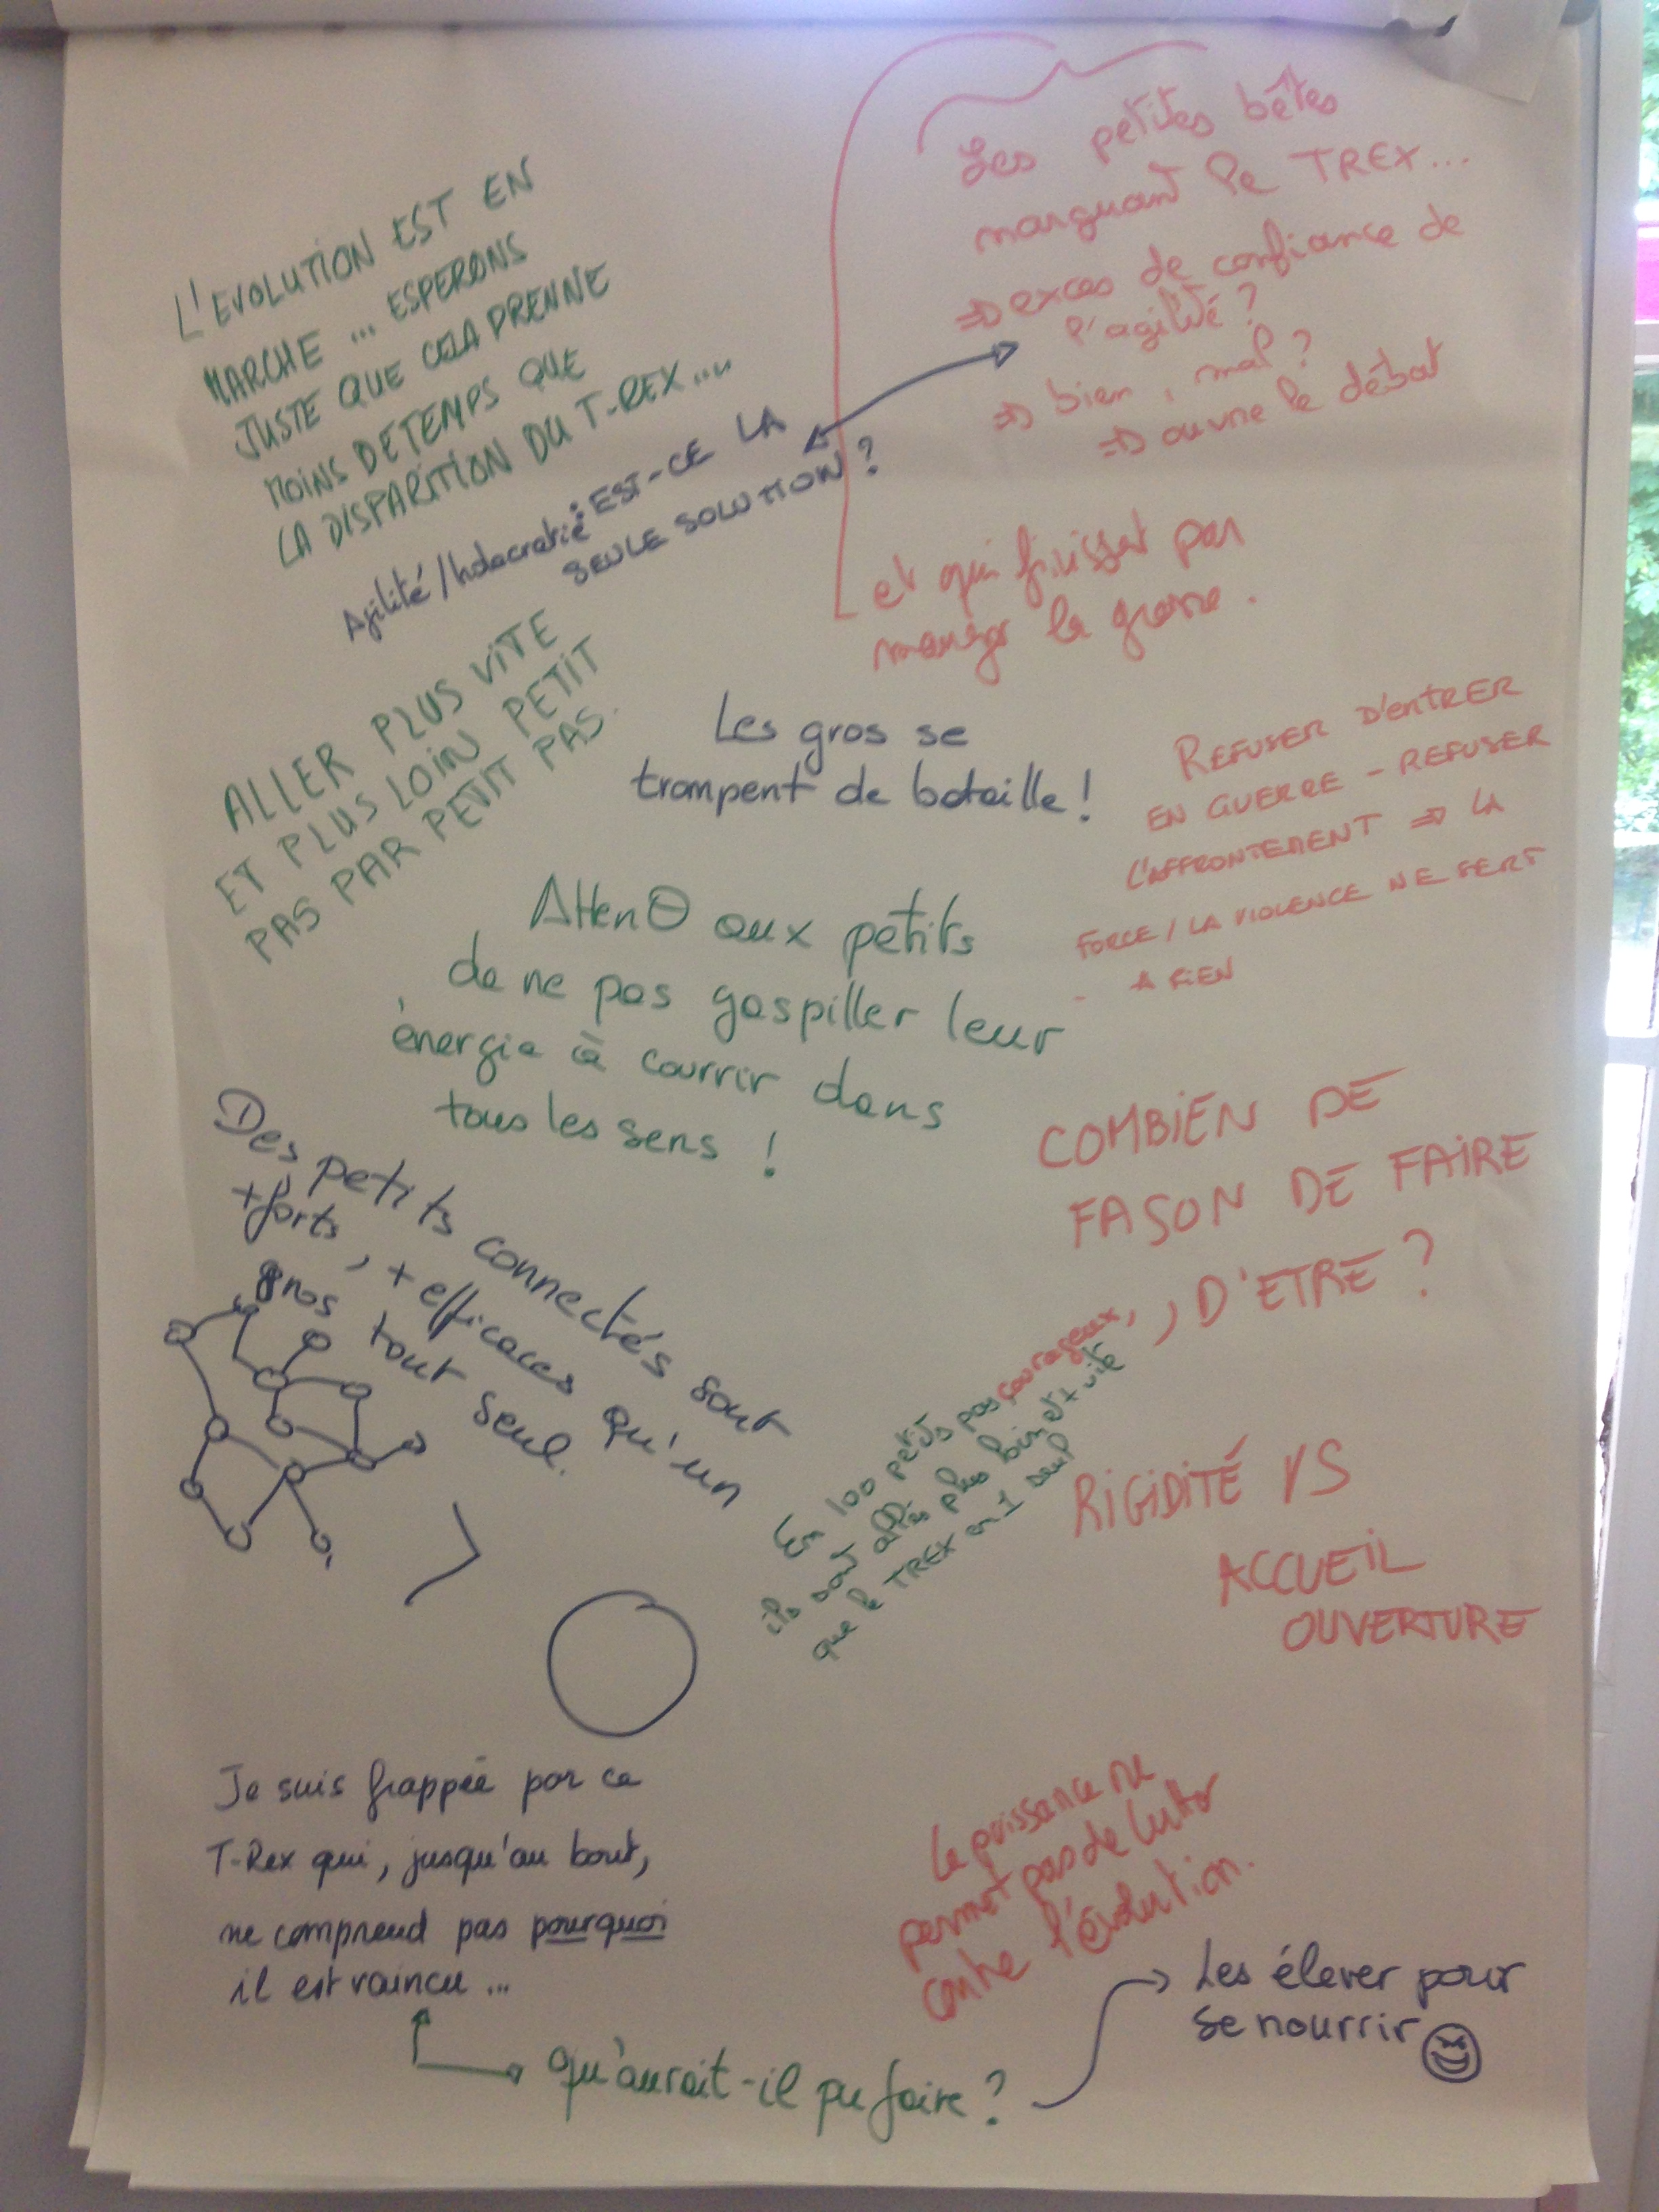 L'EVOLUTION EST EN
MARCHE ... ESPERONS
JUSTE QUE CELA PRENNE
MOINS DE TEMPS QUE
LA DISPARITION DU T-REX....
Les petites bêtes
marquant le TREX...
=> exces de confiance de
l'agilité ?
=> bien, mal ?
=> ouvre le débat
et qui finissent par
manger la graine.
Agilité/holocratie : EST-CE LA
SEULE SOLUTION ?
ALLER PLUS VITE
ET PLUS LOIN PETIT
PAS PAR PETIT PAS.
Les gros se
trompent de bataille !
REFUSER D'ENTRER
EN GUERRE - REFUSER
L'AFFRONTEMENT => LA
FORCE / LA VIOLENCE NE SERT
A RIEN
AttenΘ aux petits
de ne pas gaspiller leur
énergie à courrir dans
tous les sens !
COMBIEN DE
FASON DE FAIRE
, D'ETRE ?
Des petits connectés sont
+ forts, + efficaces qu'un
gros tout seul.
>
En 100 petits pas courageux,
ils sont allés plus loin et + vite
que le TREX en 1 seul
RIGIDITÉ VS
ACCUEIL
OUVERTURE
Je suis frappée par ce
T-Rex qui, jusqu'au bout,
ne comprend pas pourquoi
il est vaincu ...
La puissance ne
permet pas de lutter
contre l'évolution.
qu'aurait-il pu faire ?
Les élever pour
se nourrir